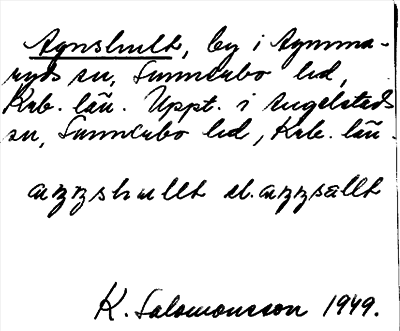 Agnshult, by i Annma-
ryds sn, Sunnerbo hd,
Krb. län. Uppt. i Angelstads
sn, Sunnerbo hd, Krb. län.
aŋŋshullt el. aŋŋsallt
K. Salomonsson 1949.